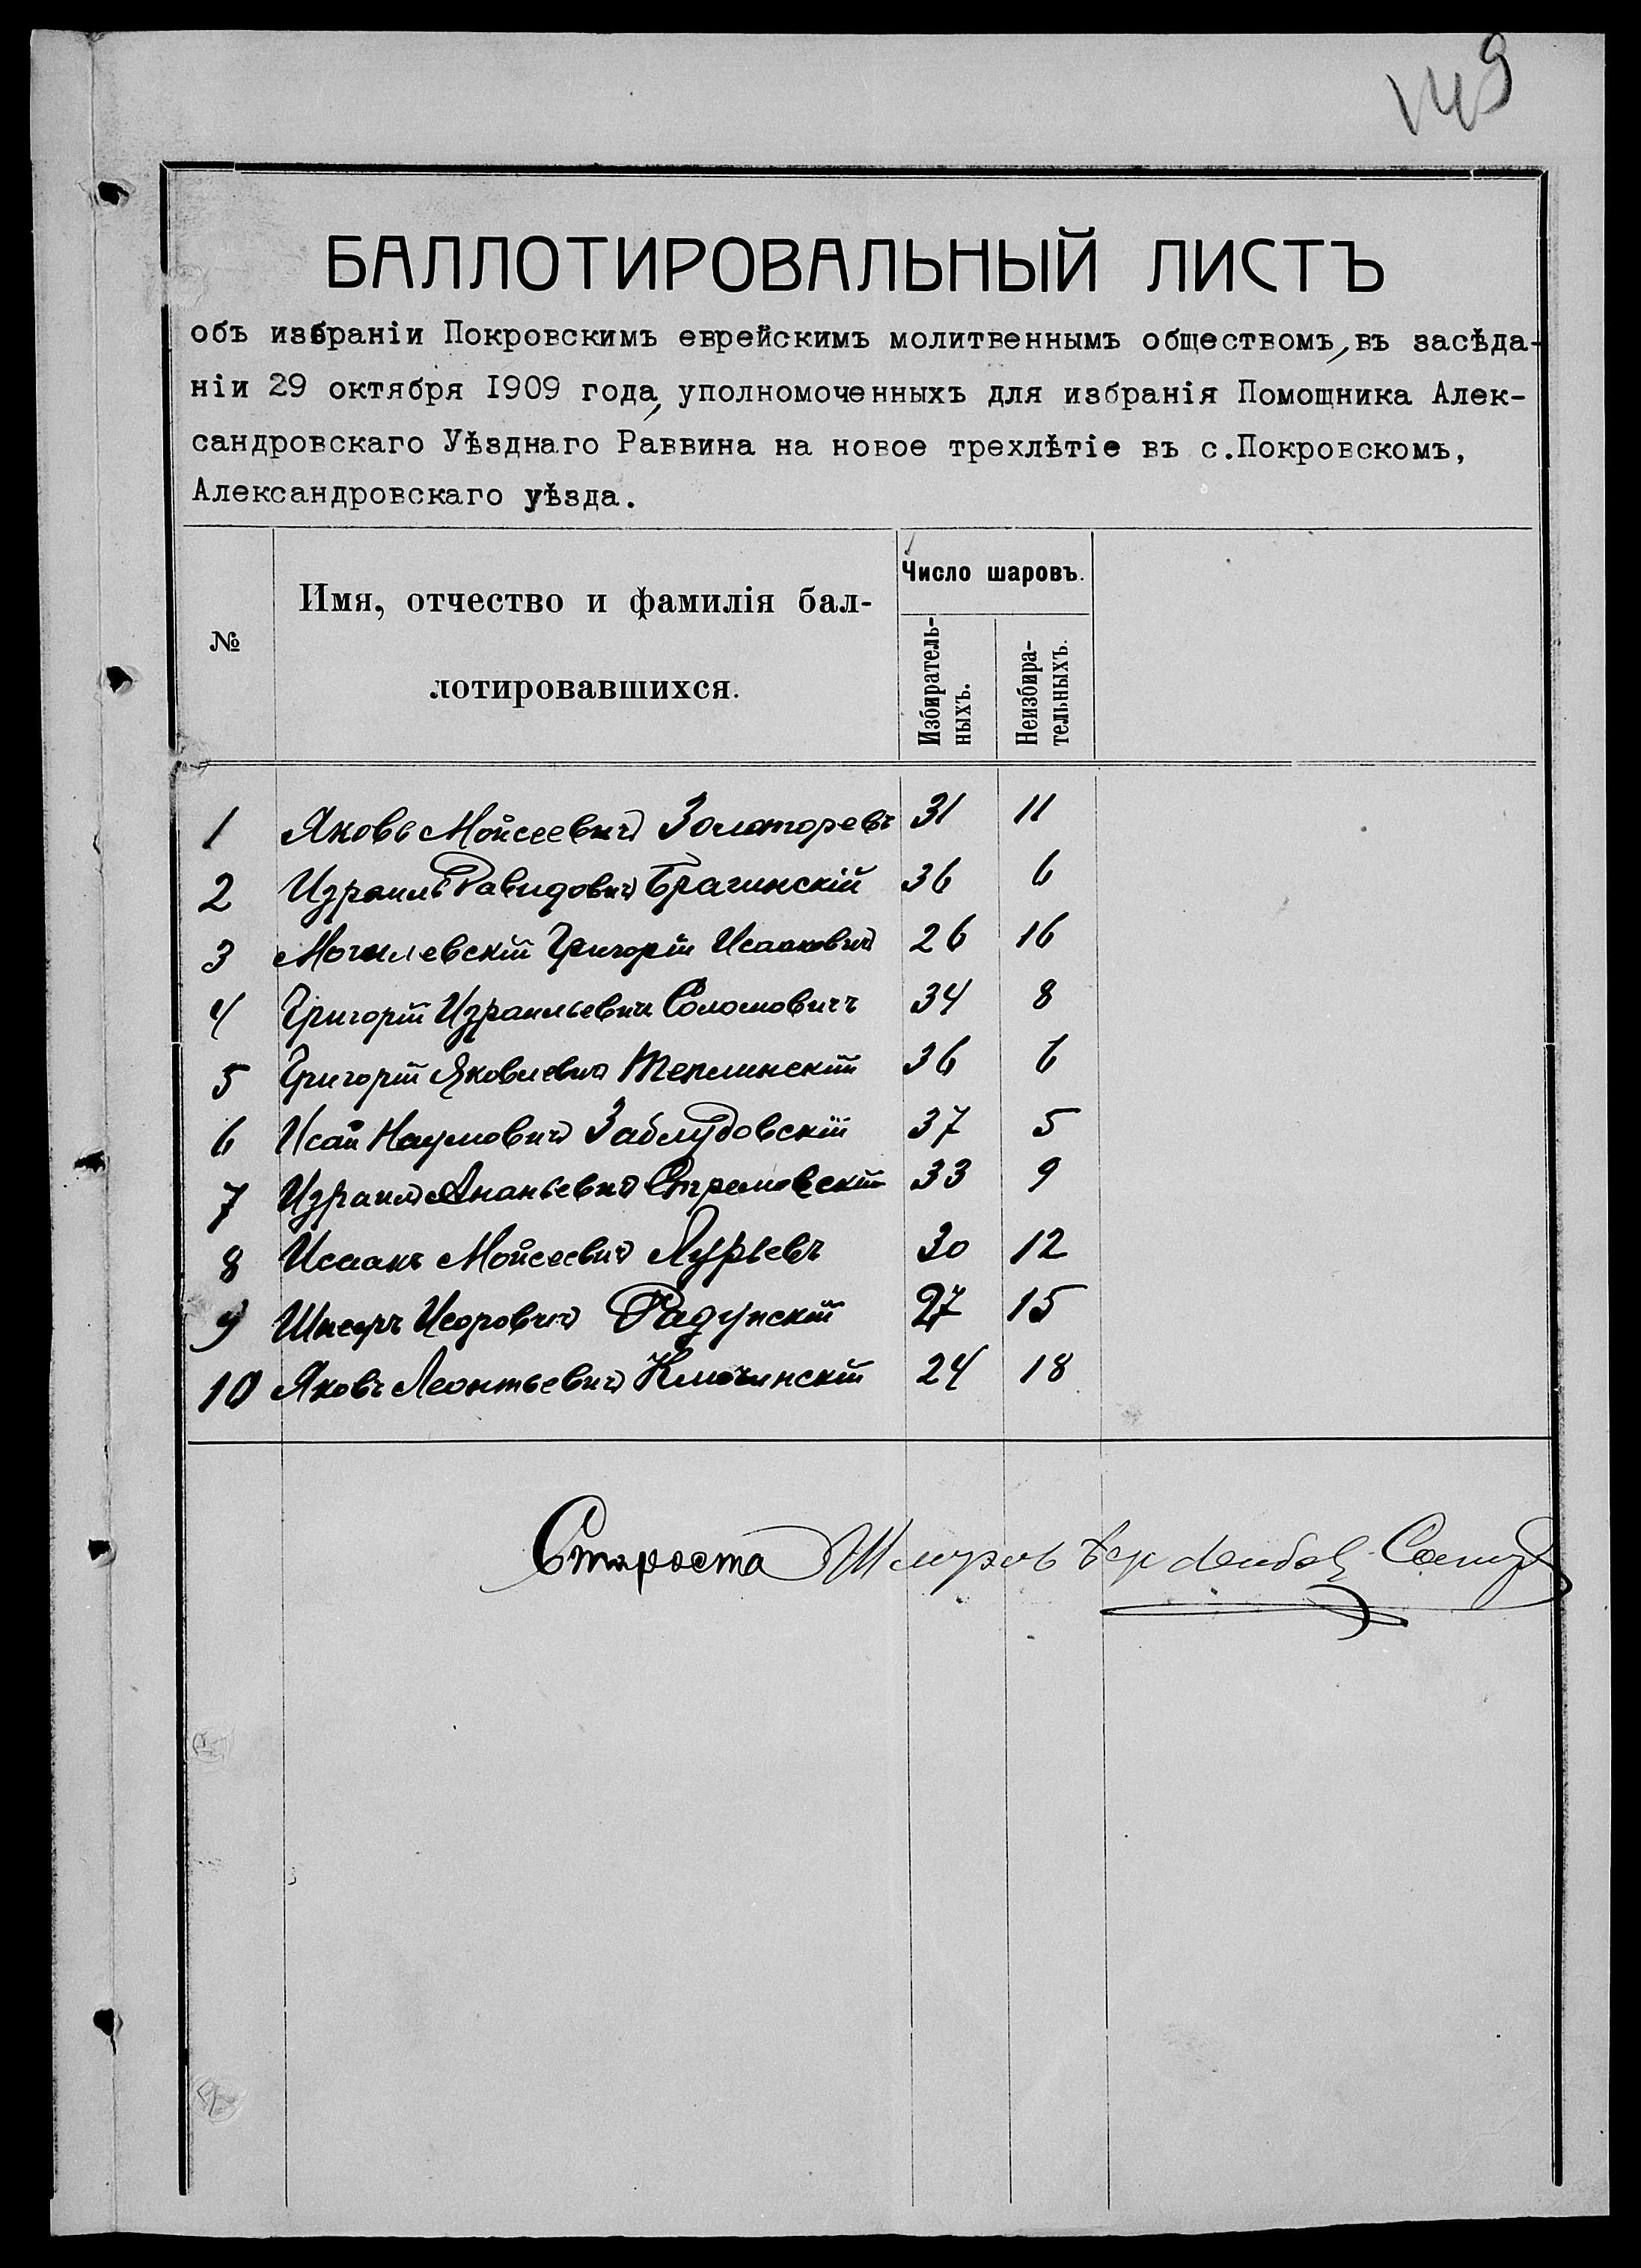 149
БАЛЛОТИРОВАЛЬНЫЙ ЛИСТЪ
объ избраніи Покровскимъ еврейскимъ молитвеннымъ обществомъ, въ засѣда-
ніи 29 октября 1909 года, уполномоченныхъ для избранія Помощника Алек-
сандровскаго Уѣзднаго Раввина на новое трехлѣтіе въ с.Покровскомъ,
Александровскаго уѣзда.
№
Имя, отчество и фамилія бал-
лотировавшихся.
Число шаровъ.
Избиратель-
ныхъ.
Неизбира-
тельныхъ.
1 Яковъ Мойсеевичъ Золоторевъ 31 11
2 Израиль Давидовичъ Брагинскій 36 6
3 Могилевскій Григорій Исааковичъ 26 16
4 Григорій Израильевичъ Соломовичъ 34 8
5 Григорій Яковлевичъ Теплинскій 36 6
6 Исай Наумовичъ Заблудовскій 37 5
7 Израиль Ананьевичъ 33 9
8 Исаакъ Мойсеевичъ Лурьевъ 30 12
9 27 15
10 Яковъ Леонтьевичъ Ключинскій 24 18
Староста